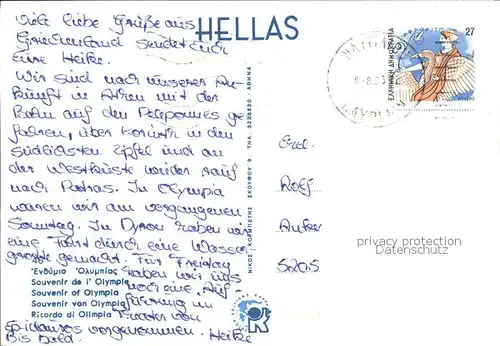 HELLAS
Viele liebe Grüße aus
Griechenland sendet euch
Eure Heike.
Wir sind nach unserer An-
kunft in Athen mit der
Bahn auf den Peloponnes ge-
fahren, über Korinth in den
südlichsten Zipfel und an
der Westküste wieder rauf
nach Patras. In Olympia
waren wir am vergangenen
Sonntag. In Dyron haben wir
eine Fahrt durch eine Wasser-
grotte gemacht. Für Freitag
haben wir uns
noch eine Auf-
führung im
Theater von
Epidauros vorgenommen. Heike
Bis bald.
Ἐνθύμιο Ὀλυμπίας
Souvenir de l' Olympia
Souvenir of Olympia
Souvenir von Olympia
Ricordo di Olimpia
ΝΙΚΟΣ ΚΟΡΜΠΕΤΗΣ ΣΚΟΥΦΟΥ 9, ΤΗΛ. 3228820 - ΑΘΗΝΑ
27
ΕΛΛΗΝΙΚΗ ΔΗΜΟΚΡΑΤΙΑ
HELLAS
Rolf
5205
privacy protection
Datenschutz